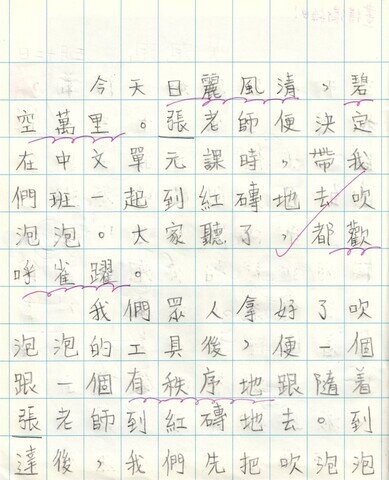 今天日麗風清，碧
空萬里。張老師便決定
在中文單元課時，帶我
們班一起到紅磚地去吹
泡泡。大家聽了，都歡
呼雀躍。
我們眾人拿好了吹
泡泡的工具後，便一個
跟一個有秩序地跟隨着
張老師到紅磚地去。到
達後，我們先把吹泡泡